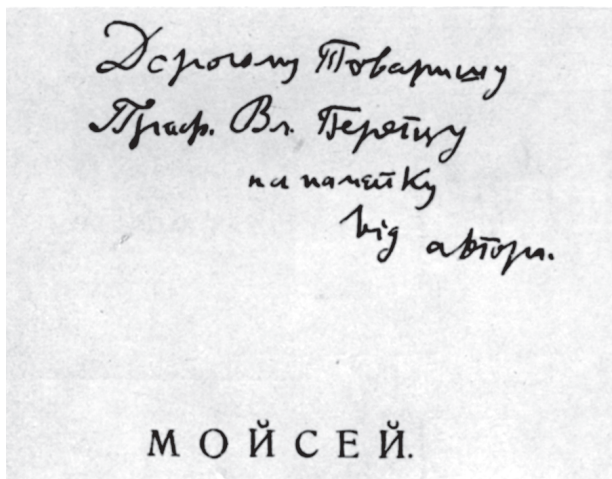 Дорогому Товаришу
Проф. Вл. Перетцу
на памятку
від автора.
МОЙСЕЙ.